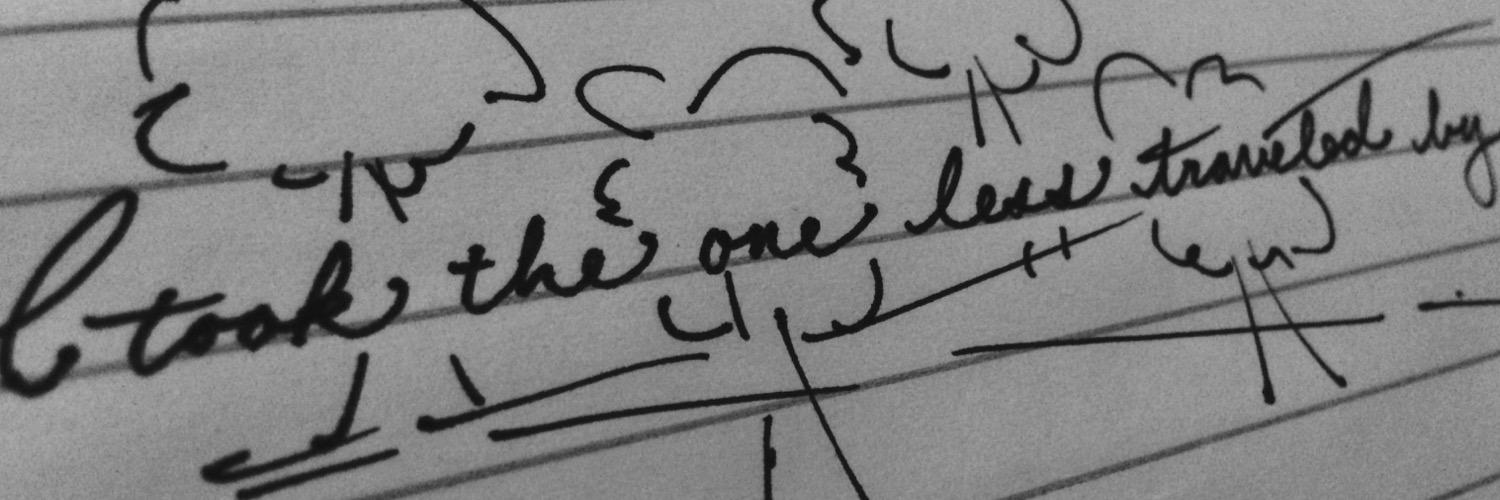 I took the one less traveled by